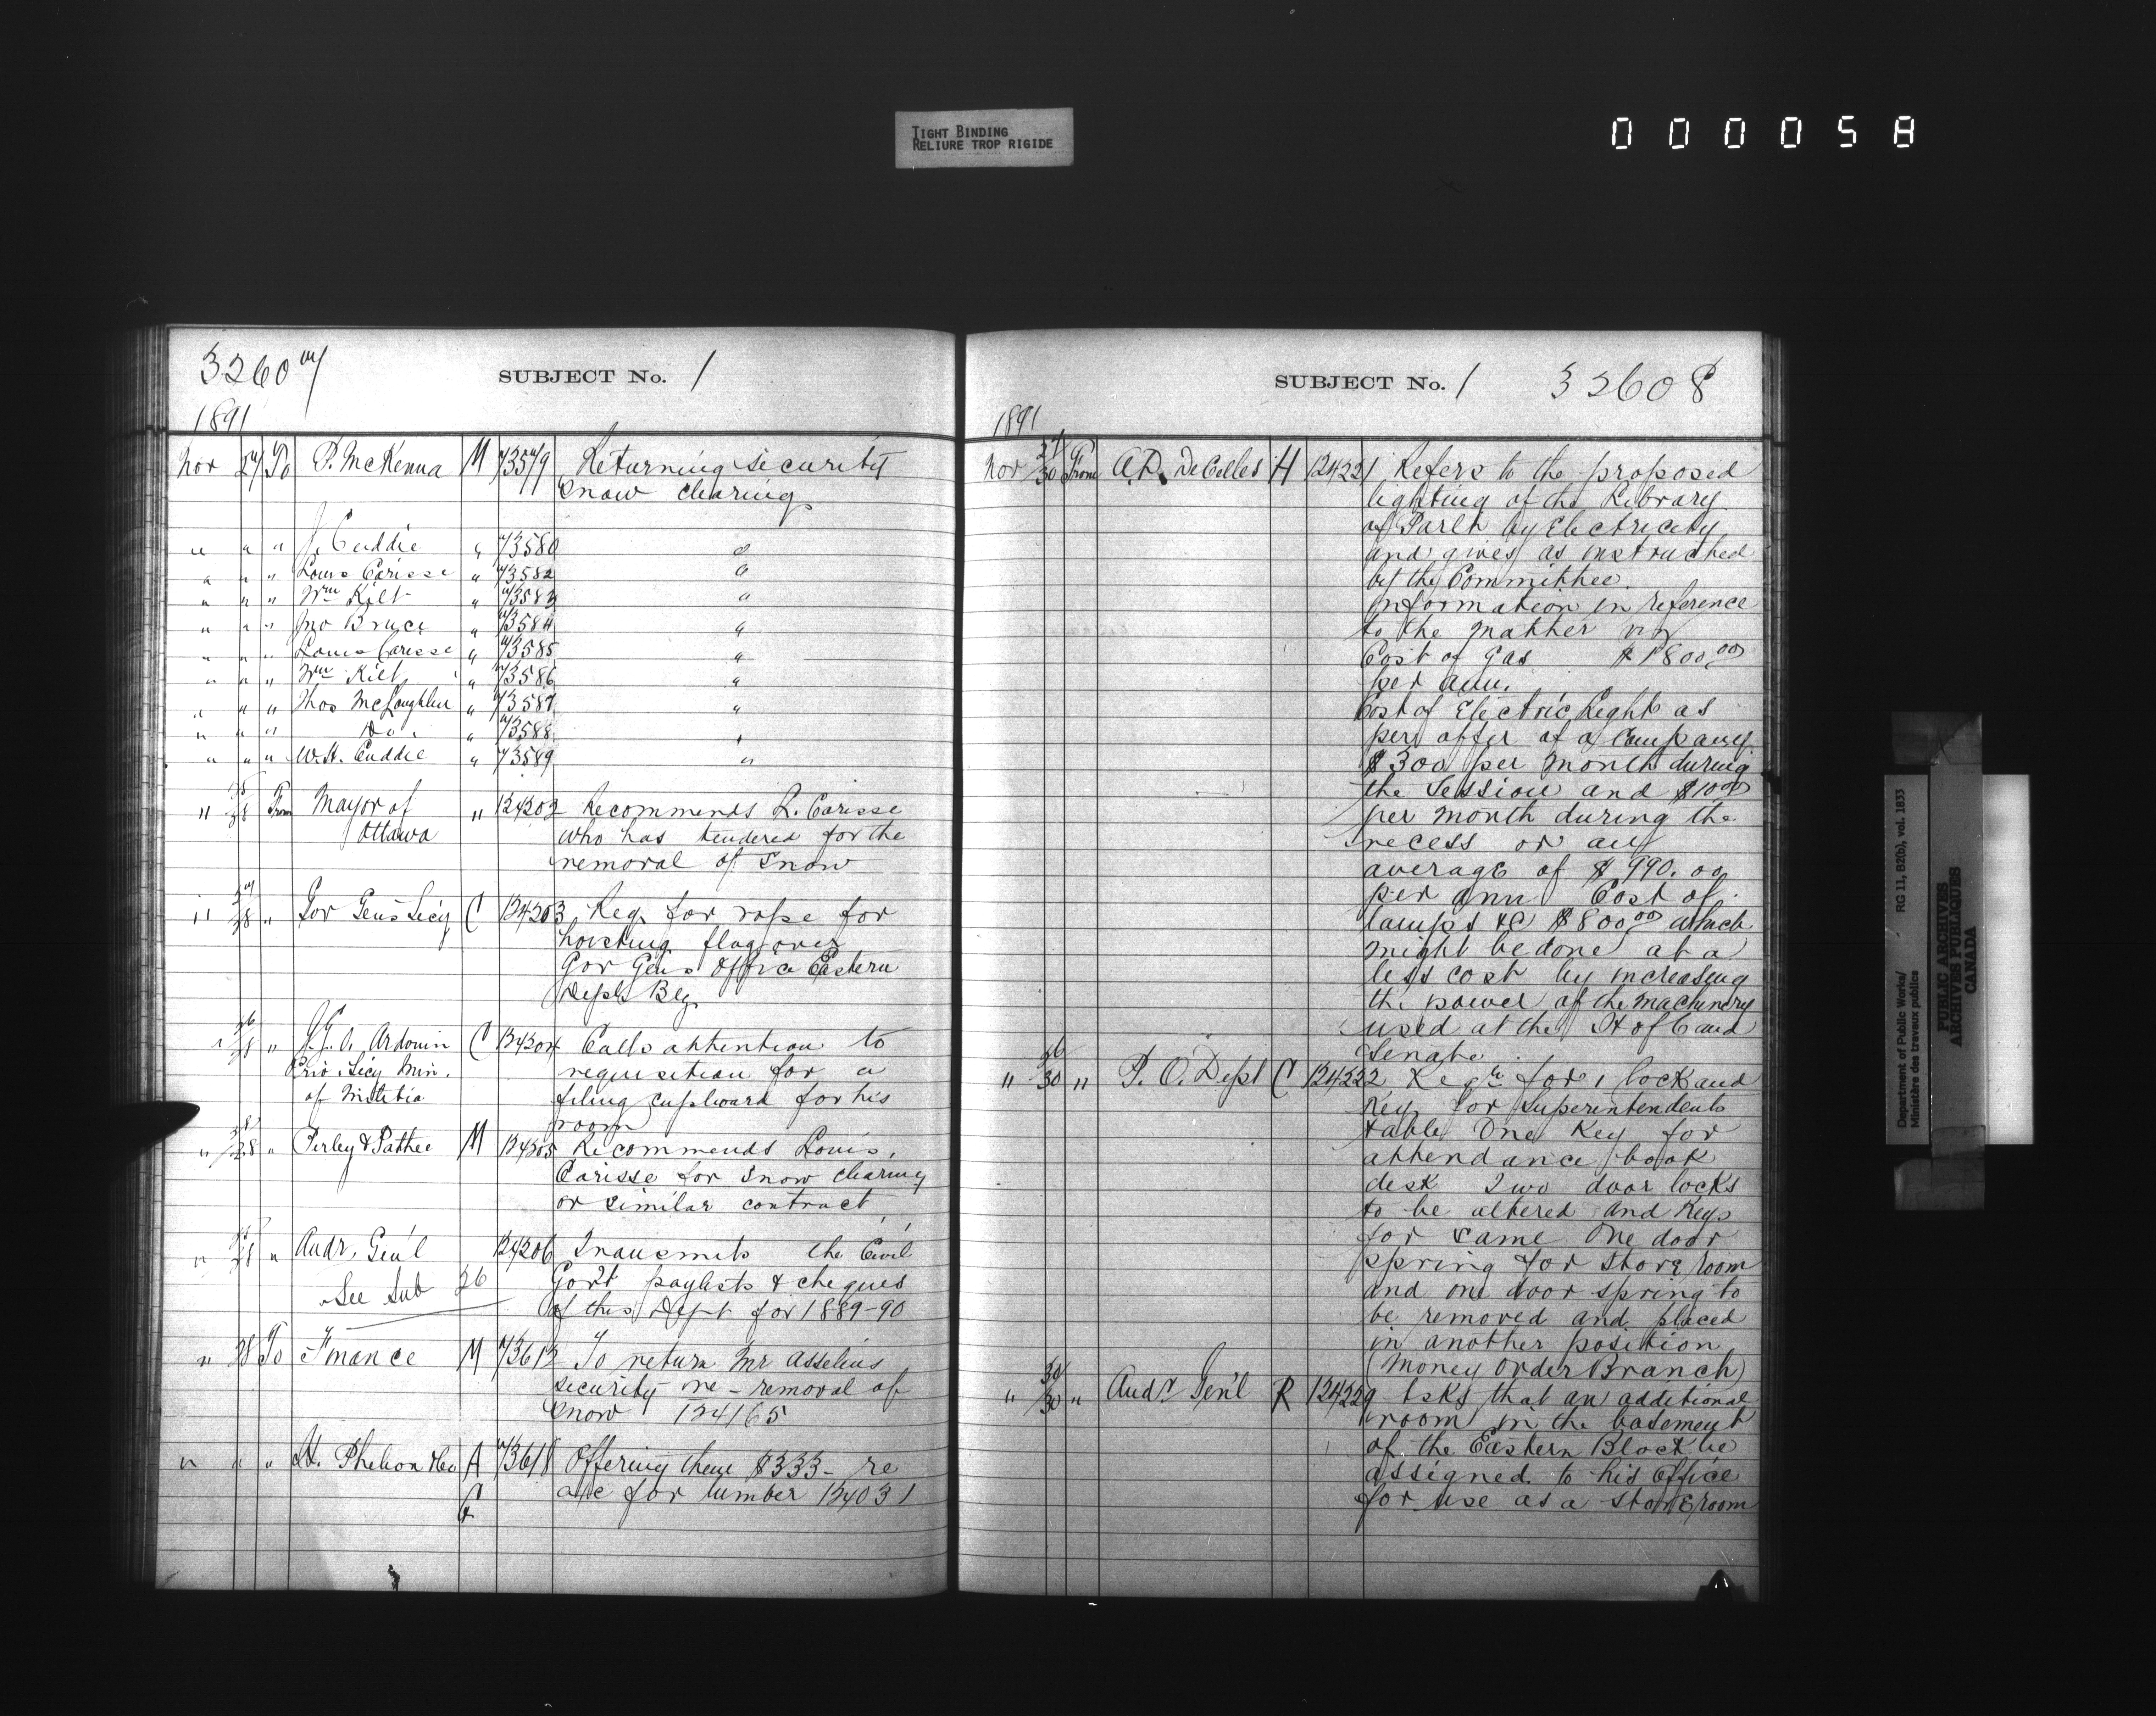 TIGHT BINDING
RELIURE TROP RIGIDE
000058
32607
SUBJECT No. 1
1891
Nov 27 To P. McKenna M 73579 Returning security
Snow clearing
" " " J. Cuddie " 73580 "
" " " Louis Carisse " 73582 "
" " " Wm Kilt " 73583 "
" " " Jno Bruce " 73584 "
" " " Louis Carisse " 73585 "
" " " Wm Kilt " 73586 "
" " " Thos McLaughlin " 73587 "
" " " Do. " 73588 "
" " " W. H. Cuddie " 73589 "
" 25/28 From Mayor of " 124202 Recommends L. Carisse
Ottawa who has tendered for the
removal of snow
" 27/28 " Gov Gen's Secy C 124203 Req. for rope for
hoisting flag over
Gov Gen's Office Eastern
Deptl Blg.
" 26/28 " Ardouin C 124204 Calls attention to
Priv. Secy Min. requisition for a
of Militia filing cupboard for his
room
" 28 " Perley & Pattee M 124205 Recommends Louis
Carisse for snow clearing
or similar contract
" 28 " Audr. Gen'l 124206 Transmits the Civil
See Sub 26 Gov't paylists & cheques
of this Dept for 1889-90
" 28 To Finance M 73612 To return Mr Asselins
security re - removal of
snow 124165
" " " H. Phelon &Co A 73618 Offering them $333 - re
a/c for lumber 124031
SUBJECT No. 1 32608
1891
Nov 27/30 From A.D. DeCelles H 124221 Refers to the proposed
lighting of the Library
of Parlt by Electricity
and gives as instructed
by the Committee.
information in reference
to the matter viz
Cost of Gas $1800.00
per ann.
Cost of Electric Light as
per offer of a Company
$300 per month during
the Session and $10.00
per month during the
recess or an
average of $990.00
per ann Cost of
lamps &c $800.00 which
might be done at a
less cost by increasing
the power of the machinery
used at the H of C and
Senate.
" 26/30 " P. O. Dept C 124222 Reqn for 1 lock and
Key for Superintendents
table One Key for
attendance book
desk Two door locks
to be altered and Keys
for same One door
spring for store room
and one door spring to
be removed and placed
in another position
(Money Order Branch)
" 30/30 " Audr Gen'l R 124229 Asks that an additional
room in the basement
of the Eastern Block be
assigned to his Office
for use as a store room
Department of Public Works/ RG 11, B2(b), vol. 1833
Ministère des travaux publics
PUBLIC ARCHIVES
ARCHIVES PUBLIQUES
CANADA